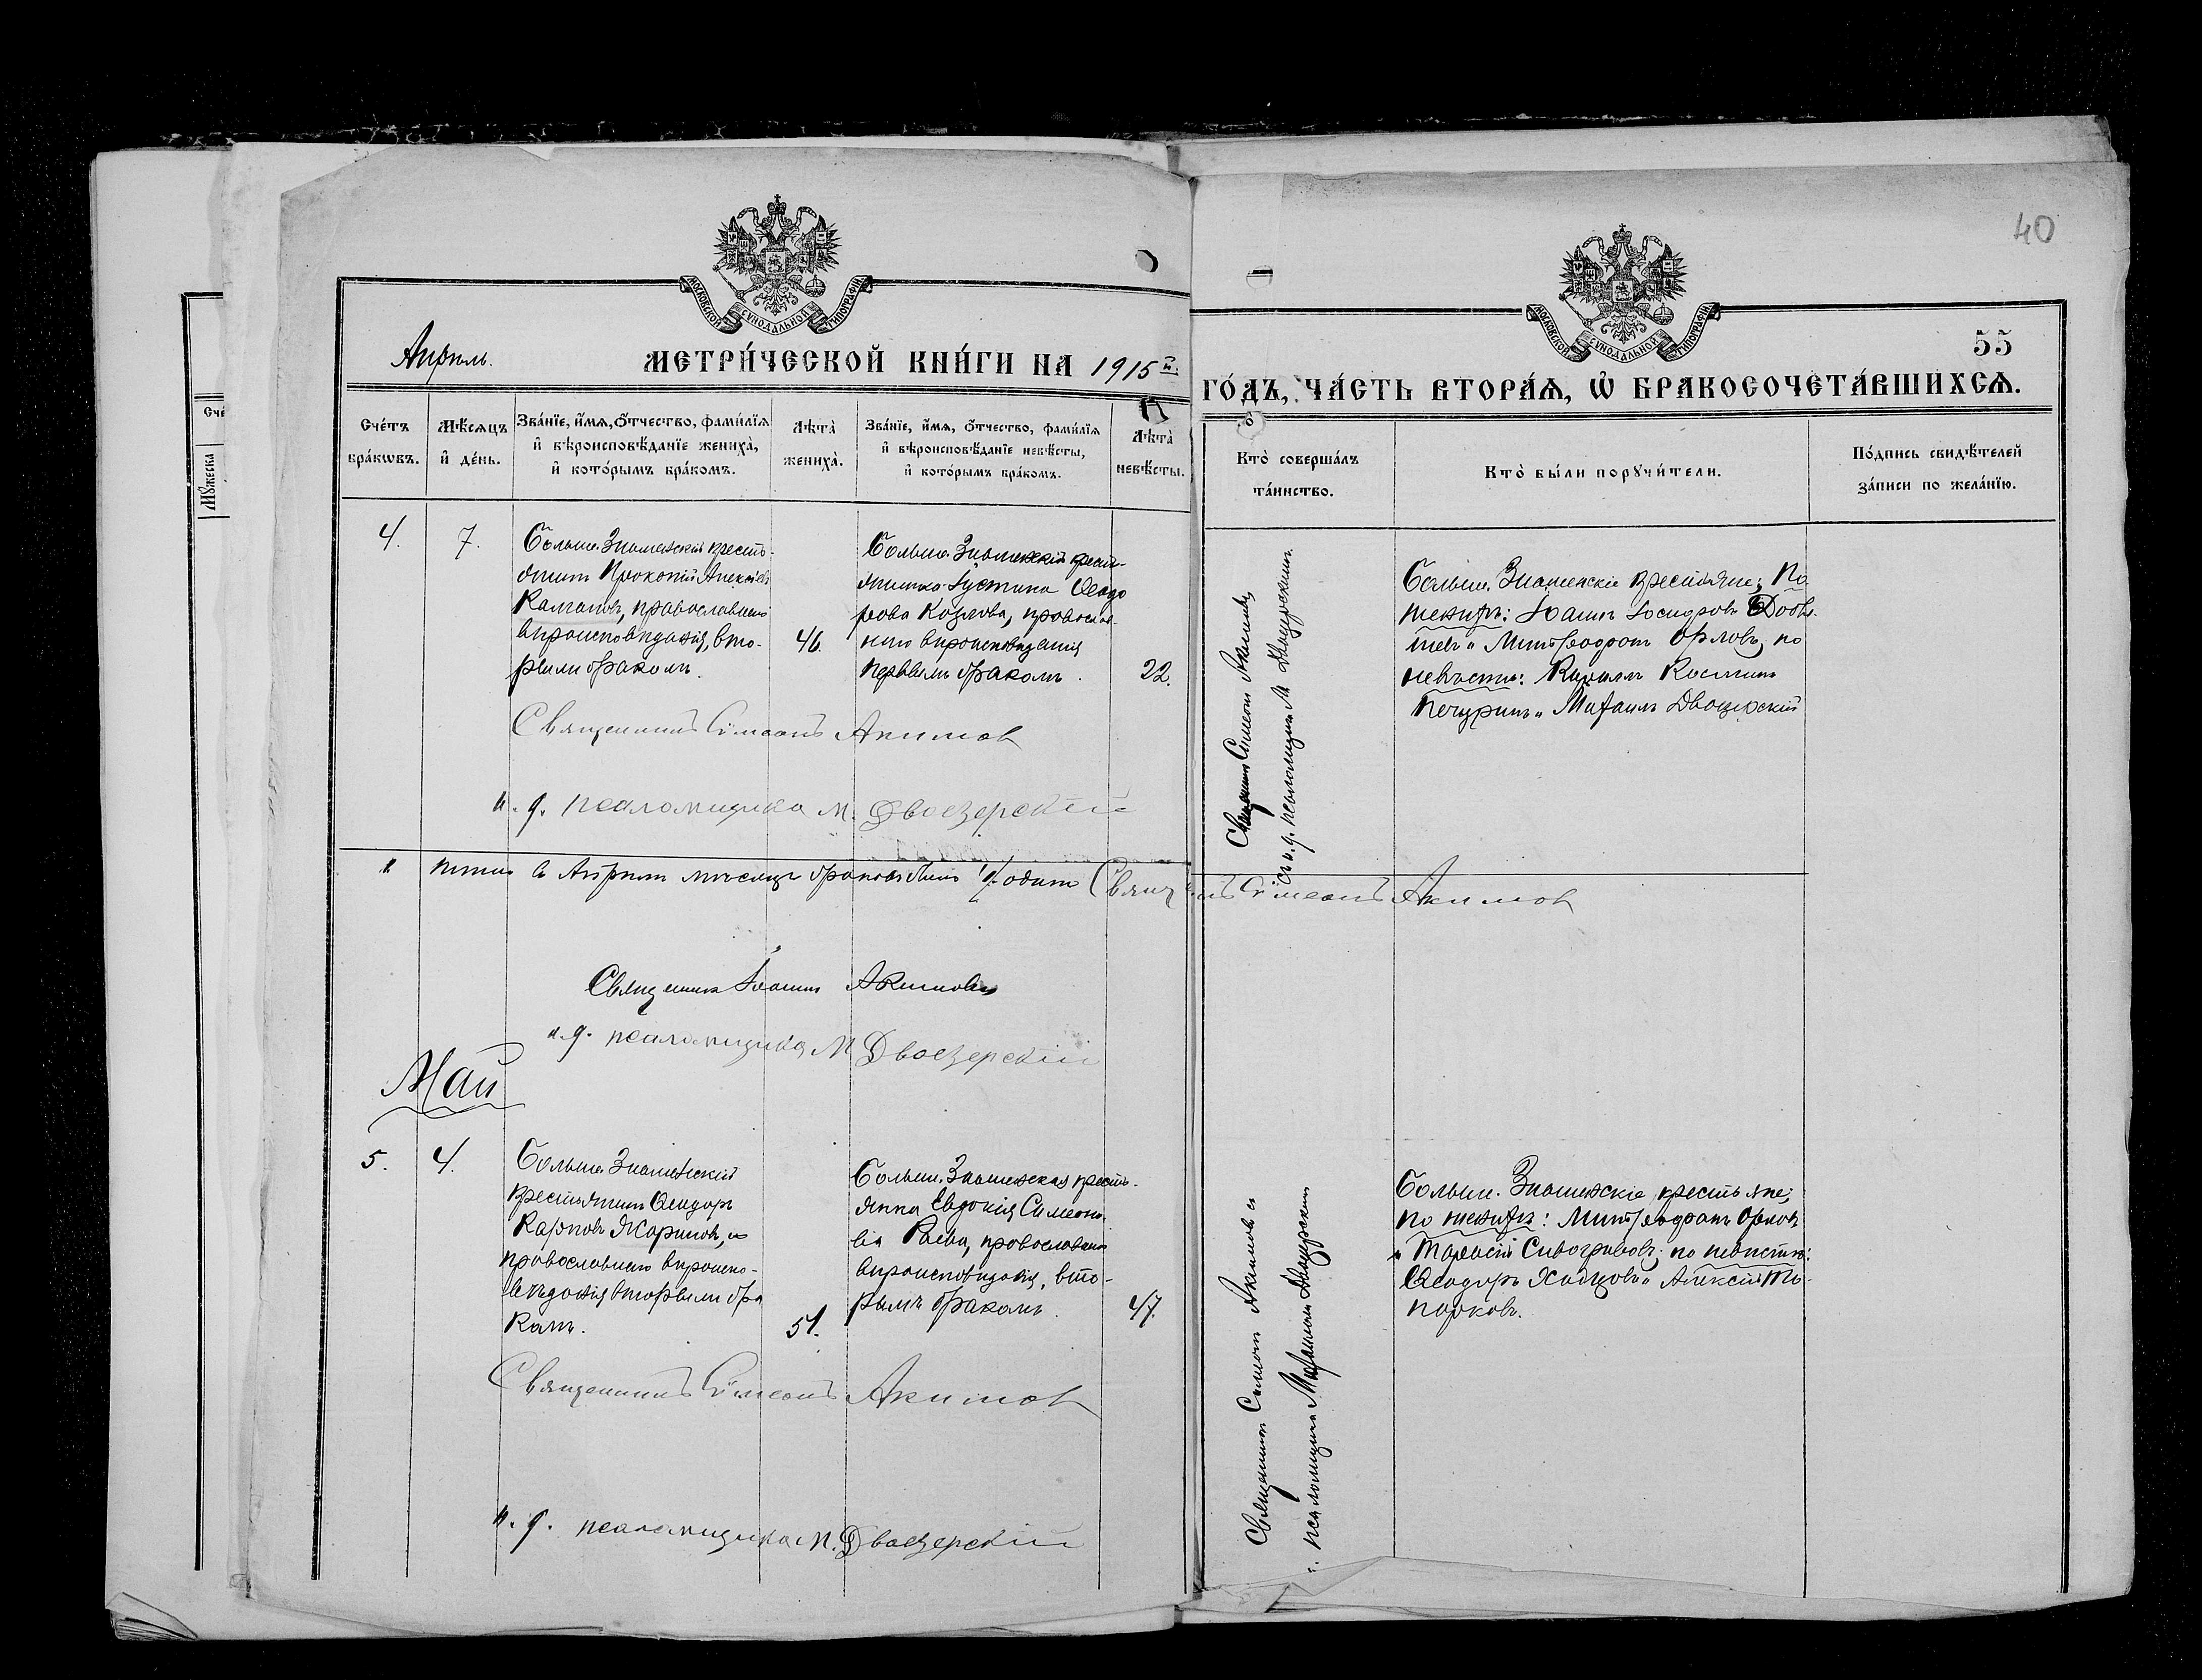 40
МОСКОВСКОЙ СУНОДАЛЬНОЙ ТИПОГРАФІИ
МОСКОВСКОЙ СУНОДАЛЬНОЙ ТИПОГРАФІИ
55
Апрѣль.
МЕТРИ́ЧЕСКОЙ КНИ́ГИ НА 1915й.
ГО́ДЪ, ЧА́СТЬ ВТОРА́Ѧ, Ѡ҆ БРАКОСОЧЕТА́ВШИХСѦ.
Счéтъ
бра́кѡвъ.
Мѣ́сѧцъ
и҆ де́нь.
Зва́нїе, и҆́мѧ, ѻ҆́тчество, фами́лїѧ
и҆ вѣроисповѣ́данїе жениха̀,
и҆ кото́рымъ бра́комъ.
Лѣта̀
жениха̀.
Зва́нїе, и҆́мѧ, ѻ҆́тчество, фами́лїѧ
и҆ вѣроисповѣ́данїе невѣ́сты,
и҆ кото́рымъ бра́комъ.
Лѣта̀
невѣ́сты.
Кто̀ соверша́лъ
та́инство.
Кто̀ бы́ли порꙋчи́тели.
По́дпись свидѣ́телей
за́писи по жела́нїю.
4.
7.
Больше Знаменскій кресть-
янинъ Прокопій Алексѣевъ
Калгановъ, православнаго
вѣроисповѣданія, вто-
рымъ бракомъ.
46.
Больше Знаменская кресть-
янинка Іустина Ѳеодо
рова Козлова, православ-
наго вѣроисповѣданія
первымъ бракомъ.
22.
Священникъ Симеонъ Акимовъ
съ и. д. псаломщика М. Двоезерскимъ.
Больше. Знаменскіе крестьяне; По
женихѣ: Іоаннъ Іосифовъ
и Митрофанъ Орловъ, по
невѣстѣ: Кириллъ Косминъ
Печуринъ и Михаилъ Двоезерскій
Священникъ Сімеонъ Акимовъ
и. д. псаломщика М. Двоезерскій
Итого въ Апрѣлѣ мѣсяцѣ браковъ было /1/ одинъ Священникъ Сімеонъ Акимовъ
Священникъ Іоаннъ Акимовъ
и. д. псаломщика М Двоезерскій
Май
5.
4.
Больше Знаменскій
крестьянинъ Ѳеодоръ
Карповъ Жариновъ,
православнаго вѣроиспо-
вѣданія вторымъ бра
комъ.
51.
Больше. Знаменская кресть-
янка Евдокія Симеоно-
ва Раева, православнаго
вѣроисповѣданія, вто-
рымъ бракомъ.
47.
Священникъ Симеонъ Акимовъ съ
псаломщикомъ Михаиломъ Двоезерскимъ
Больше. Знаменскіе крестьяне;
по женихѣ: Митрофанъ Орловъ
и Тарасій Сивогривовъ; по невѣстѣ:
Ѳеодоръ Ходцовъ и Алексій То-
порковъ.
Священникъ Сімеонъ Акимовъ
и. д. псаломщика М. Двоезерскій